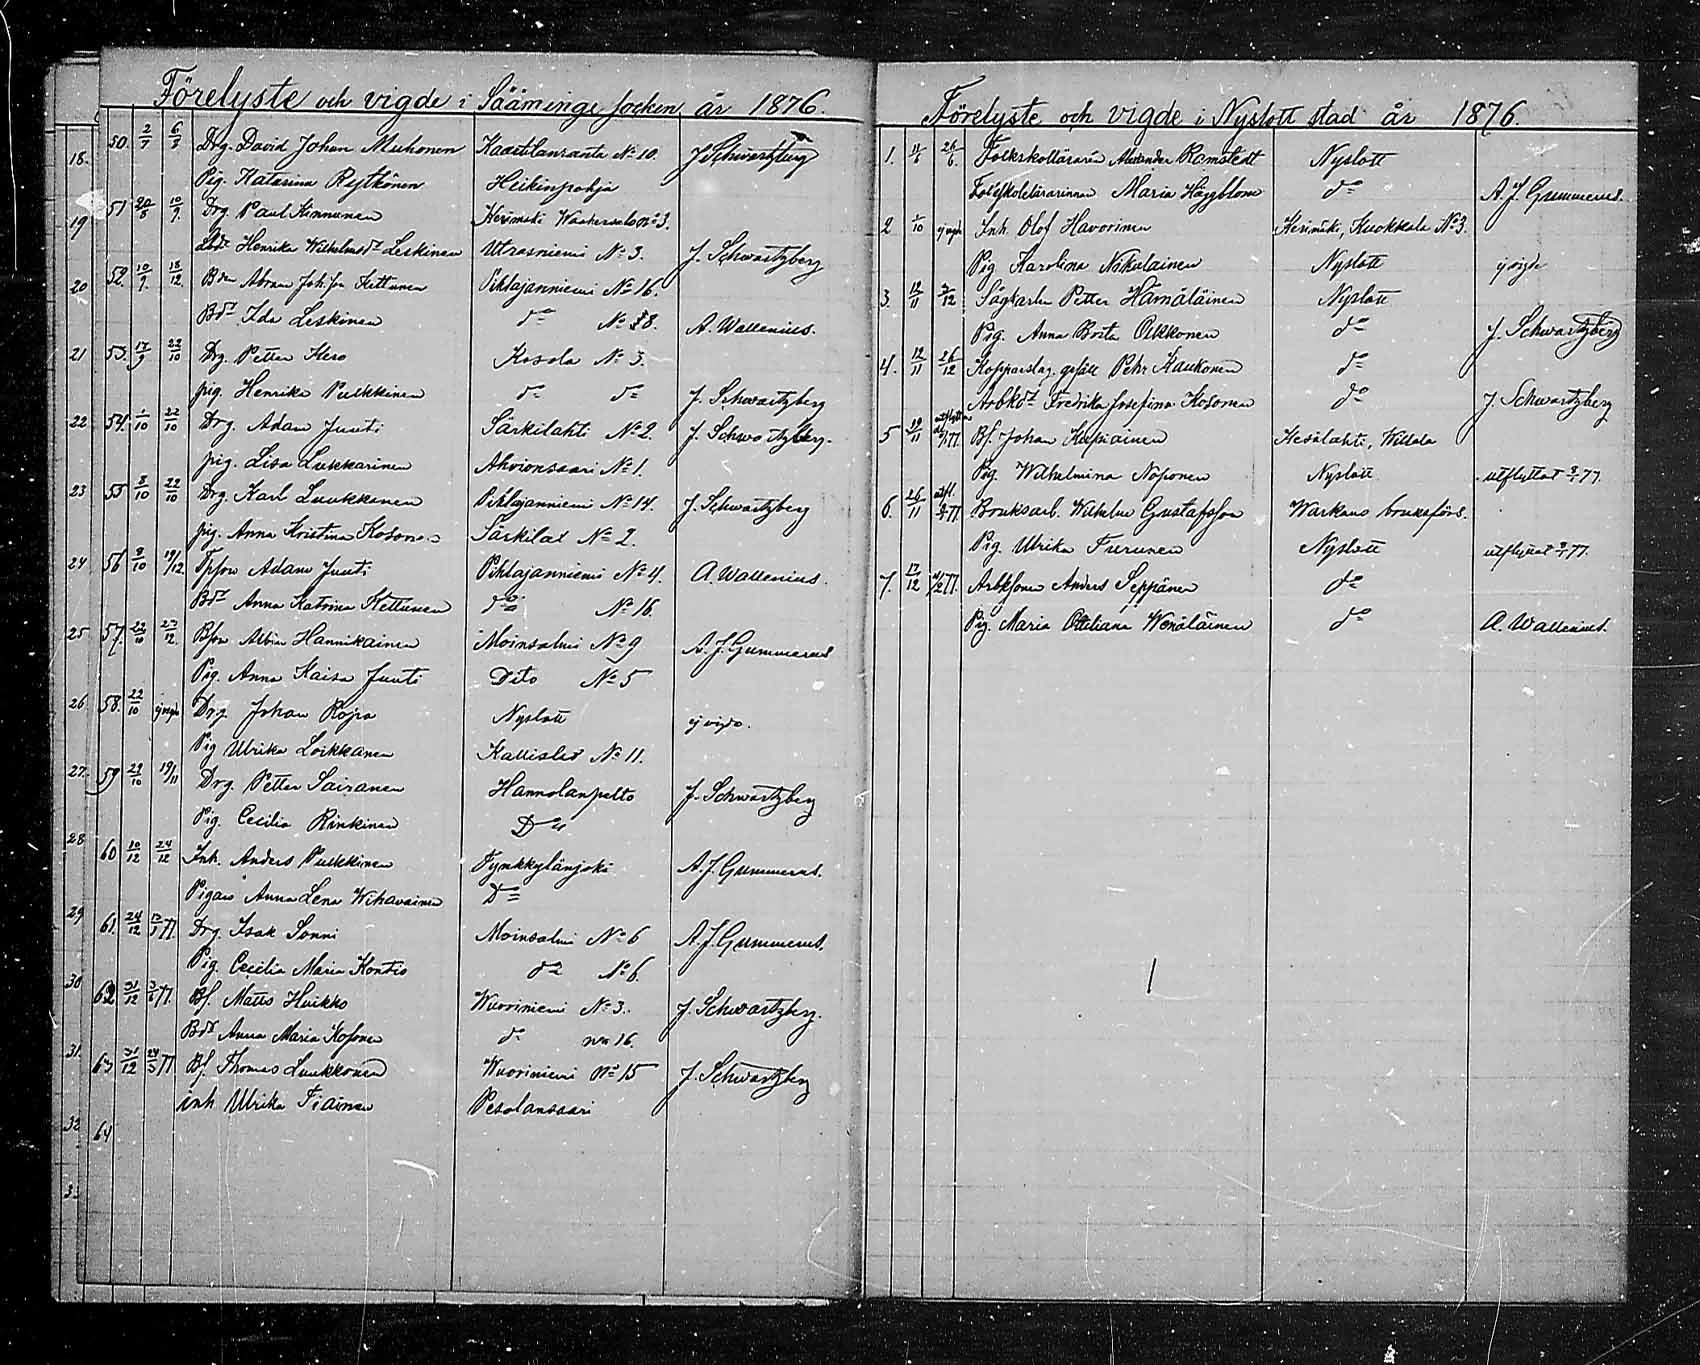 Förelyste och vigde i Sääminge socken år 1876.
18. 50. 2/7 6/8 Drg. David Johan Muhonen Kaartilanranta No 10. J Schwartzberg
Pig. Katarina Rejtkönen Heikinpohja
19 51 20/8 10/9. Drg. Paul Kinnunen Kerimäki Waahersalo no 3.
Henrika Wilhelmsdr Leskinen Utrasniemi No 3. J. Schwartzberg
20 52. 10/9. 18/12. Abram Joh. son Kettunen Pihlajanniemi No 16.
Bdr Ida Leskinen do No 8. A. Wallenius.
21 53. 17/9 22/10 Drg. Petter Kosola No 3.
pig. Henrika Pulkkinen do do J. Schwartzberg
22 54. 1/10 22/10 Drg. Adam Juuti Särkilahti No 2. J. Schwartzberg.
pig. Lisa Lukkarinen Ahvionsaari No 1.
23 55 8/10 22/10 Drg. Karl Luukkonen Pihlajanniemi No 14. J. Schwartzberg
pig. Anna Kristina Kosonen Särkilax No 2.
24 56 9/10 19/12. Adam Juuti Pihlajanniemi No 4. A. Wallenius.
Bdr Anna Katrina Kettunen do No 16.
25 57. 22/10 27/12. Albin Hannikainen Moinsalmi No 9 A. J. Gummerus
Pig. Anna Kaisa Juuti Dito No 5
26 58. 22/10 ej vigde Drg. Johan Nyslott ej vigde.
Pig Ulrika Loikkanen Kallislax No 11.
27. 59 29/10 19/11 Drg. Petter Sairanen Hannolanpelto J. Schwartzberg
Pig. Cecilia Rinkinen Do
28 60 10/12 24/12 Inh. Anders Pulkkinen Pynkkylänjoki A. J. Gummerus.
Pigan Anna Lena Wihavainen Do
29 61. 24/12 77. Drg. Isak Sonni Moinsalmi No 6 A. J. Gummerus.
Pig. Cecilia Maria Kontio do No 6.
30 62 31/12 77. Bf. Matts Huikko Wuoriniemi No 3. J. Schwartzberg.
Bdr Anna Maria Kosonen do no 16.
31. 63 31/12 77 Bf. Thomas Luukkonen Wuoriniemi No 15 J. Schwartzberg
inh Ulrika Tiainen Pesolansaari
32 64
33
Förelyste och vigde i Nyslott stad år 1876.
1. 11/6 26/6. Folkskolläraren Alexander Ramstedt Nyslott
Folkskolelärarinnan Maria Häggblom do A. J. Gummerus.
2 1/10 ej vigde Inh. Olof Havorinen Kerimäki, Kuokkala No 3.
Pig Karolina Nikulainen Nyslott ej vigde
3. 12/11 Sågkarlen Petter Hämäläinen Nyslott
Pig. Anna Brita Olkkonen do J. Schwartzberg
4. 12/11 26/12 Kopparslag. gesäll Pehr Kaukonen do
Arbkdr Fredrika Josefina Kosonen do J. Schwartzberg
5 19/11 77. Bf. Johan Kupiainen Kesälahti, Willala
Pig. Wilhelmina Noponen Nyslott utflyttat 77
6. 26/11 utfl. 77. Bruksarb. Wilhelm Gustafsson Warkaus bruksförs.
Pig. Ulrika Turunen Nyslott utflyttat 77.
7. 17/12 77. Arbksonen Anders Seppänen do
Pig. Maria Ottiliana Wenäläinen do A. Wallenius.